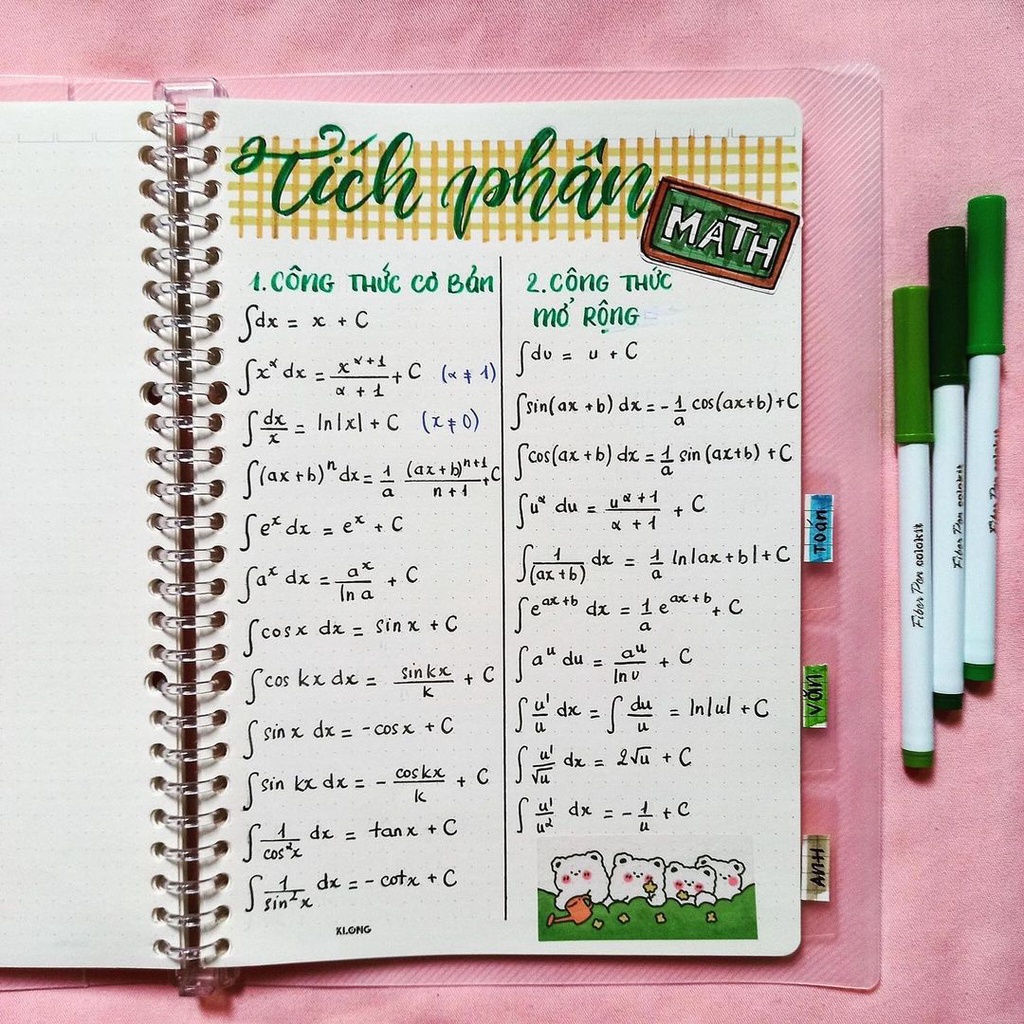 Tích phân
MATH
1. CÔNG THỨC CƠ BẢN
∫dx = x + C
∫x^α dx = x^(α+1)/(α+1) + C (α ≠ 1)
∫dx/x = ln|x| + C (x ≠ 0)
∫(ax+b)^n dx = 1/a (ax+b)^(n+1)/(n+1) + C
∫e^x dx = e^x + C
∫a^x dx = a^x/ln a + C
∫cosx dx = sinx + C
∫cos kx dx = sinkx/k + C
∫sin x dx = -cosx + C
∫sin kx dx = - coskx/k + C
∫1/cos²x dx = tanx + C
∫1/sin²x dx = -cotx + C
KLONG
2. CÔNG THỨC
MỞ RỘNG
∫du = u + C
∫sin(ax+b) dx = -1/a cos(ax+b) + C
∫cos(ax+b) dx = 1/a sin(ax+b) + C
∫u^α du = u^(α+1)/(α+1) + C
∫1/(ax+b) dx = 1/a ln|ax+b| + C
∫e^(ax+b) dx = 1/a e^(ax+b) + C
∫a^u du = a^u/ln u + C
∫u'/u dx = ∫du/u = ln|u| + C
∫u'/√u dx = 2√u + C
∫u'/u² dx = -1/u + C
TOÁN
VĂN
ANH
Fiber Pen colokit
Fiber Pen colokit
Fiber Pen colokit